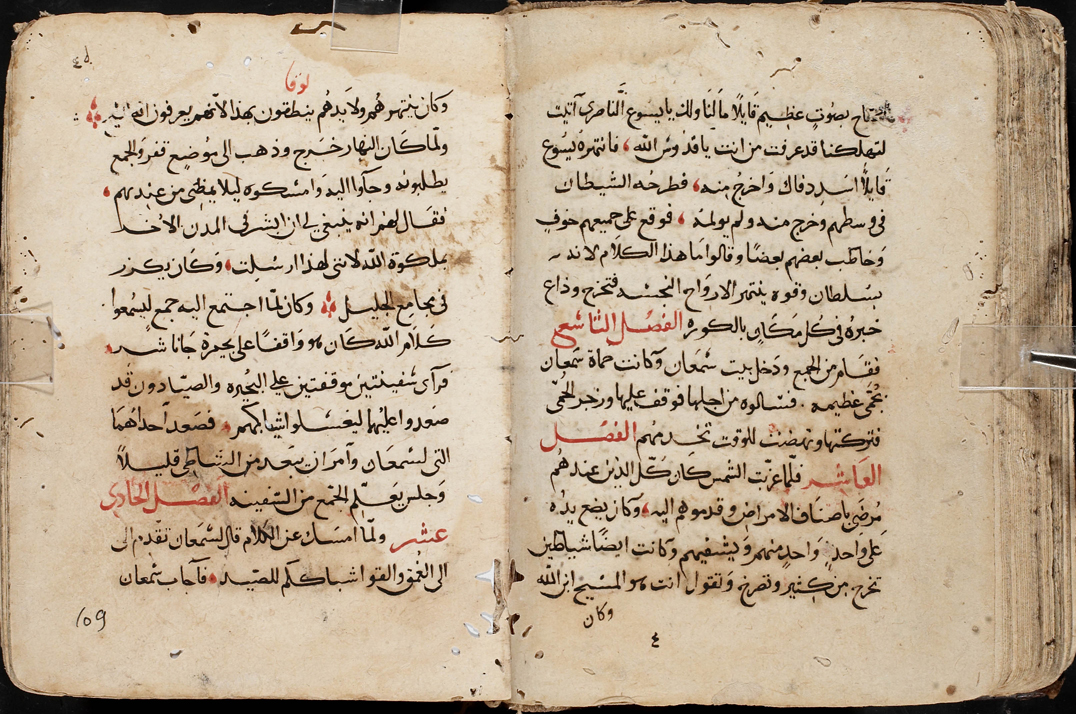 فصاح بصوتٍ عظيم قايلًا ما لنا ولك يا يسوع الناصري آتيت
لتهلكنا قد عرفت من انت يا قدوس الله، فانتهره يسوع
قايلًا اسدد فاك واخرج منه، فطرحه الشيطان
في وسطهم وخرج منه ولم يولمه، فوقع على جميعهم خوف
وخاطب بعضهم بعضًا وقالوا ما هذا الكلام لانه
بسلطان وقوه ينتهر الارواح النجسه فتخرج وذاع
خبره في كل مكان بالكوره الفصل التاسع
فقام من الجمع ودخل بيت شمعان وكانت حماة شمعان
بحمى عظيمه. فسالوه من اجلها فوقف عليها وزجر الحمى
فتركتها ونهضت للوقت تخدمهم الفصل
العاشر فلما غربت الشمس كان كل الذين عندهم
مرضى باصناف الامراض وقدموهم اليه، وكان يضع يده
على واحدٍ واحدٍ منهم ويشفيهم وكانت ايضًا شياطين
تخرج من كثيرٍ وتصرخ وتقول انت هو المسيح ابن الله
وكان
٤
لوقا
وكان ينتهرهم ولا يدعهم ينطقون بهذا لانهم يعرفون انه
ولما كان النهار خرج وذهب الى موضع قفر والجمع
يطلبونه وجآوا اليه وامسكوه ليلا يمضي من عندهم،
فقال لهم انه ينبغي لي ان ابشر في المدن الاخر
بملكوة الله لانني لهذا ارسلت، وكان يكرز
في مجامع الجليل وكان لما اجتمع اليه جمع ليسمعوا
كلام الله كان هو واقفًا على بحيرة جاناشر
فرآى سفينتين موقفتين على البحيره والصيادون قد
صعدوا عليهما ليغسلوا شباكهم، فصعد احداهما
التي لشمعان وآمر ان يبعد من الشاطي قليلاً
وجلس يعلم الجمع من السفينه الفصل الحادي
عشر ولما امسك عن الكلام قال لشمعان تقدم الى
الى العمق والقوا شباككم للصيد، فآجاب شمعان
109